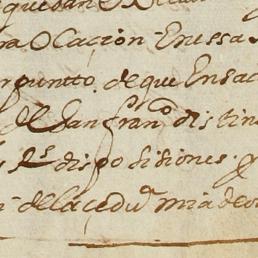 quedan
ra ocacion en essa
puntto de que en sa
el San franco distin
Rs disposisiones y
de la cedua mia de